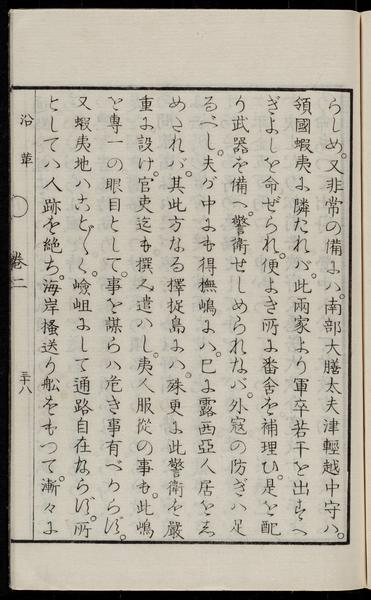 らしめ。又非常の備には。南部大膳太夫津輕越中守は。
領國蝦夷に隣たれば。此兩家より軍卒若干を出さすへ
きよしを命ぜられ。便よき所に番舎を補理ひ。是を配
り武器を備へ。警衛せしめられなば。外寇の防ぎは足
るべし。夫が中にも得撫嶋には。已に露西亞人居をし
めたれば。其此方なる擇捉島には。殊更に此警衛を嚴
重に設け。官吏迄も撰み遣はし。夷人服從の事も。此嶋
を專一の眼目として。事を謀らは危き事有べからず。
又蝦夷地はこと〴〵く。嶮岨にして通路自在ならず。所
としては人跡を絶ち。海岸搔送り舩をもつて。漸々に
沿革
卷二
三十八